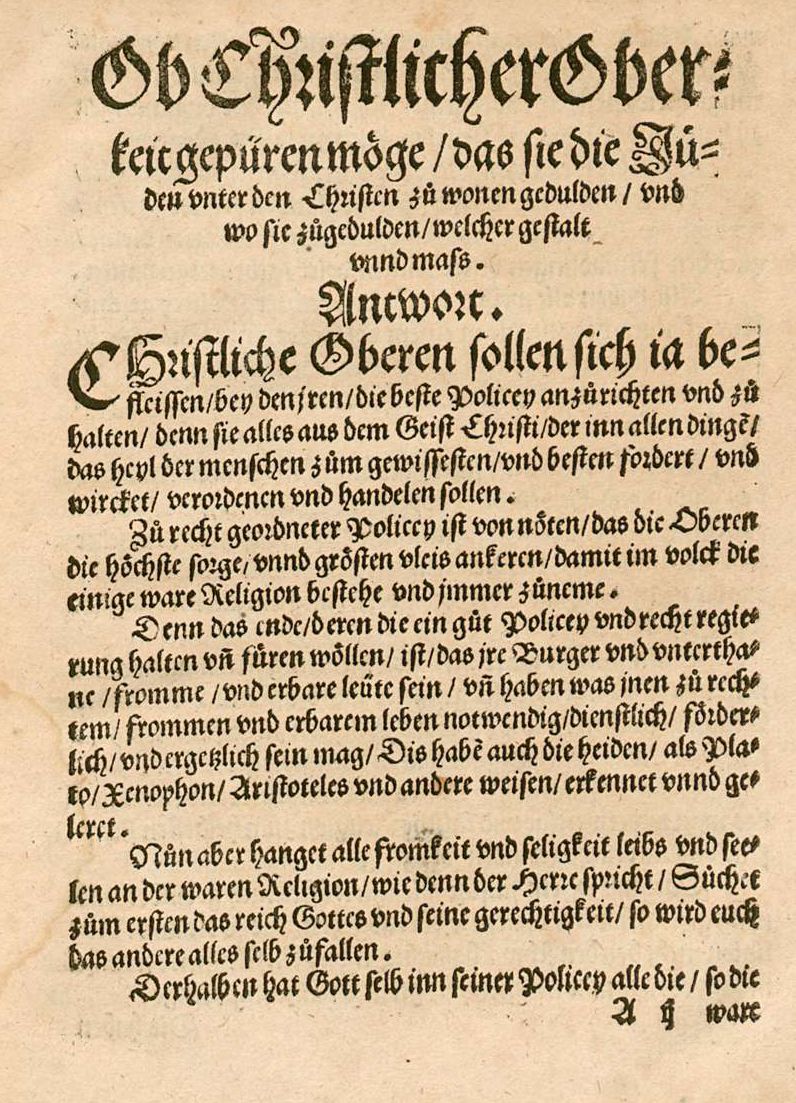 Ob Christlicher Ober⸗
keit gepüren möge / das sie die Jü⸗
den vnter den Christen zů wonen gedulden / vnd
wo sie zůgedulden / welcher gestalt
vnnd mass.
Antwort.
CHristliche Oberen sollen sich ia be⸗
fleissen / bey den jren / die beste Policey anzůrichten vnd zů
halten / denn sie alles aus dem Geist Christi / der inn allen dingẽ /
das heyl der menschen zům gewissesten / vnd besten fordert / vnd
wircket / verordenen vnd handelen sollen.
Zů recht geordneter Policey ist von nöten / das die Oberen
die höchste sorge / vnnd grösten vleis ankeren / damit im volck die
einige ware Religion bestehe vnd jmmer zůneme.
Denn das ende / deren die ein gůt Policey vnd recht regie⸗
rung halten vñ füren wöllen / ist / das jre Burger vnd vntertha⸗
ne / fromme / vnd erbare leüte sein / vñ haben was jnen zů rech⸗
tem / frommen vnd erbarem leben notwendig / dienstlich / förder⸗
lich / vnd ergetzlich sein mag / Dis habẽ auch die heiden / als Pla⸗
to / Xenophon / Aristoteles vnd andere weisen / erkennet vnnd ge⸗
leret.
Nůn aber hanget alle fromkeit vnd seligkeit leibs vnd see⸗
len an der waren Religion / wie denn der Herre spricht / Sůchet
zům ersten das reich Gottes vnd seine gerechtigkeit / so wird euch
das andere alles selb zůfallen.
Derhalben hat Gott selb inn seiner Policey alle die / so die
A ij ware